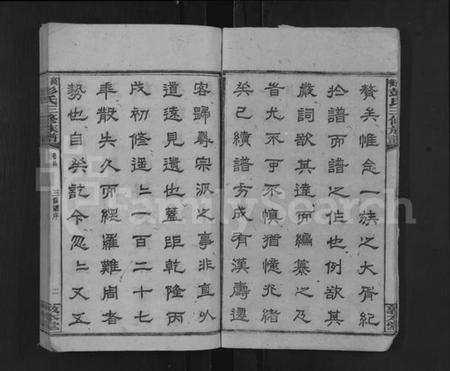 贅矣惟念一族之大胥紀
於譜而譜之作也例欲其
嚴詞欲其達而編纂之及
首尤不可不慎猶憶光緒
癸巳續譜方成有漢壽遷
彭氏三修族譜
三修譜序
二
客歸尋宗派之事非直以
道遠見遺也蓋距乾隆丙
戌初修迄上一百二十七
年散失久而經羅難周者
勢也自癸訖今忽上又五
FamilySearch